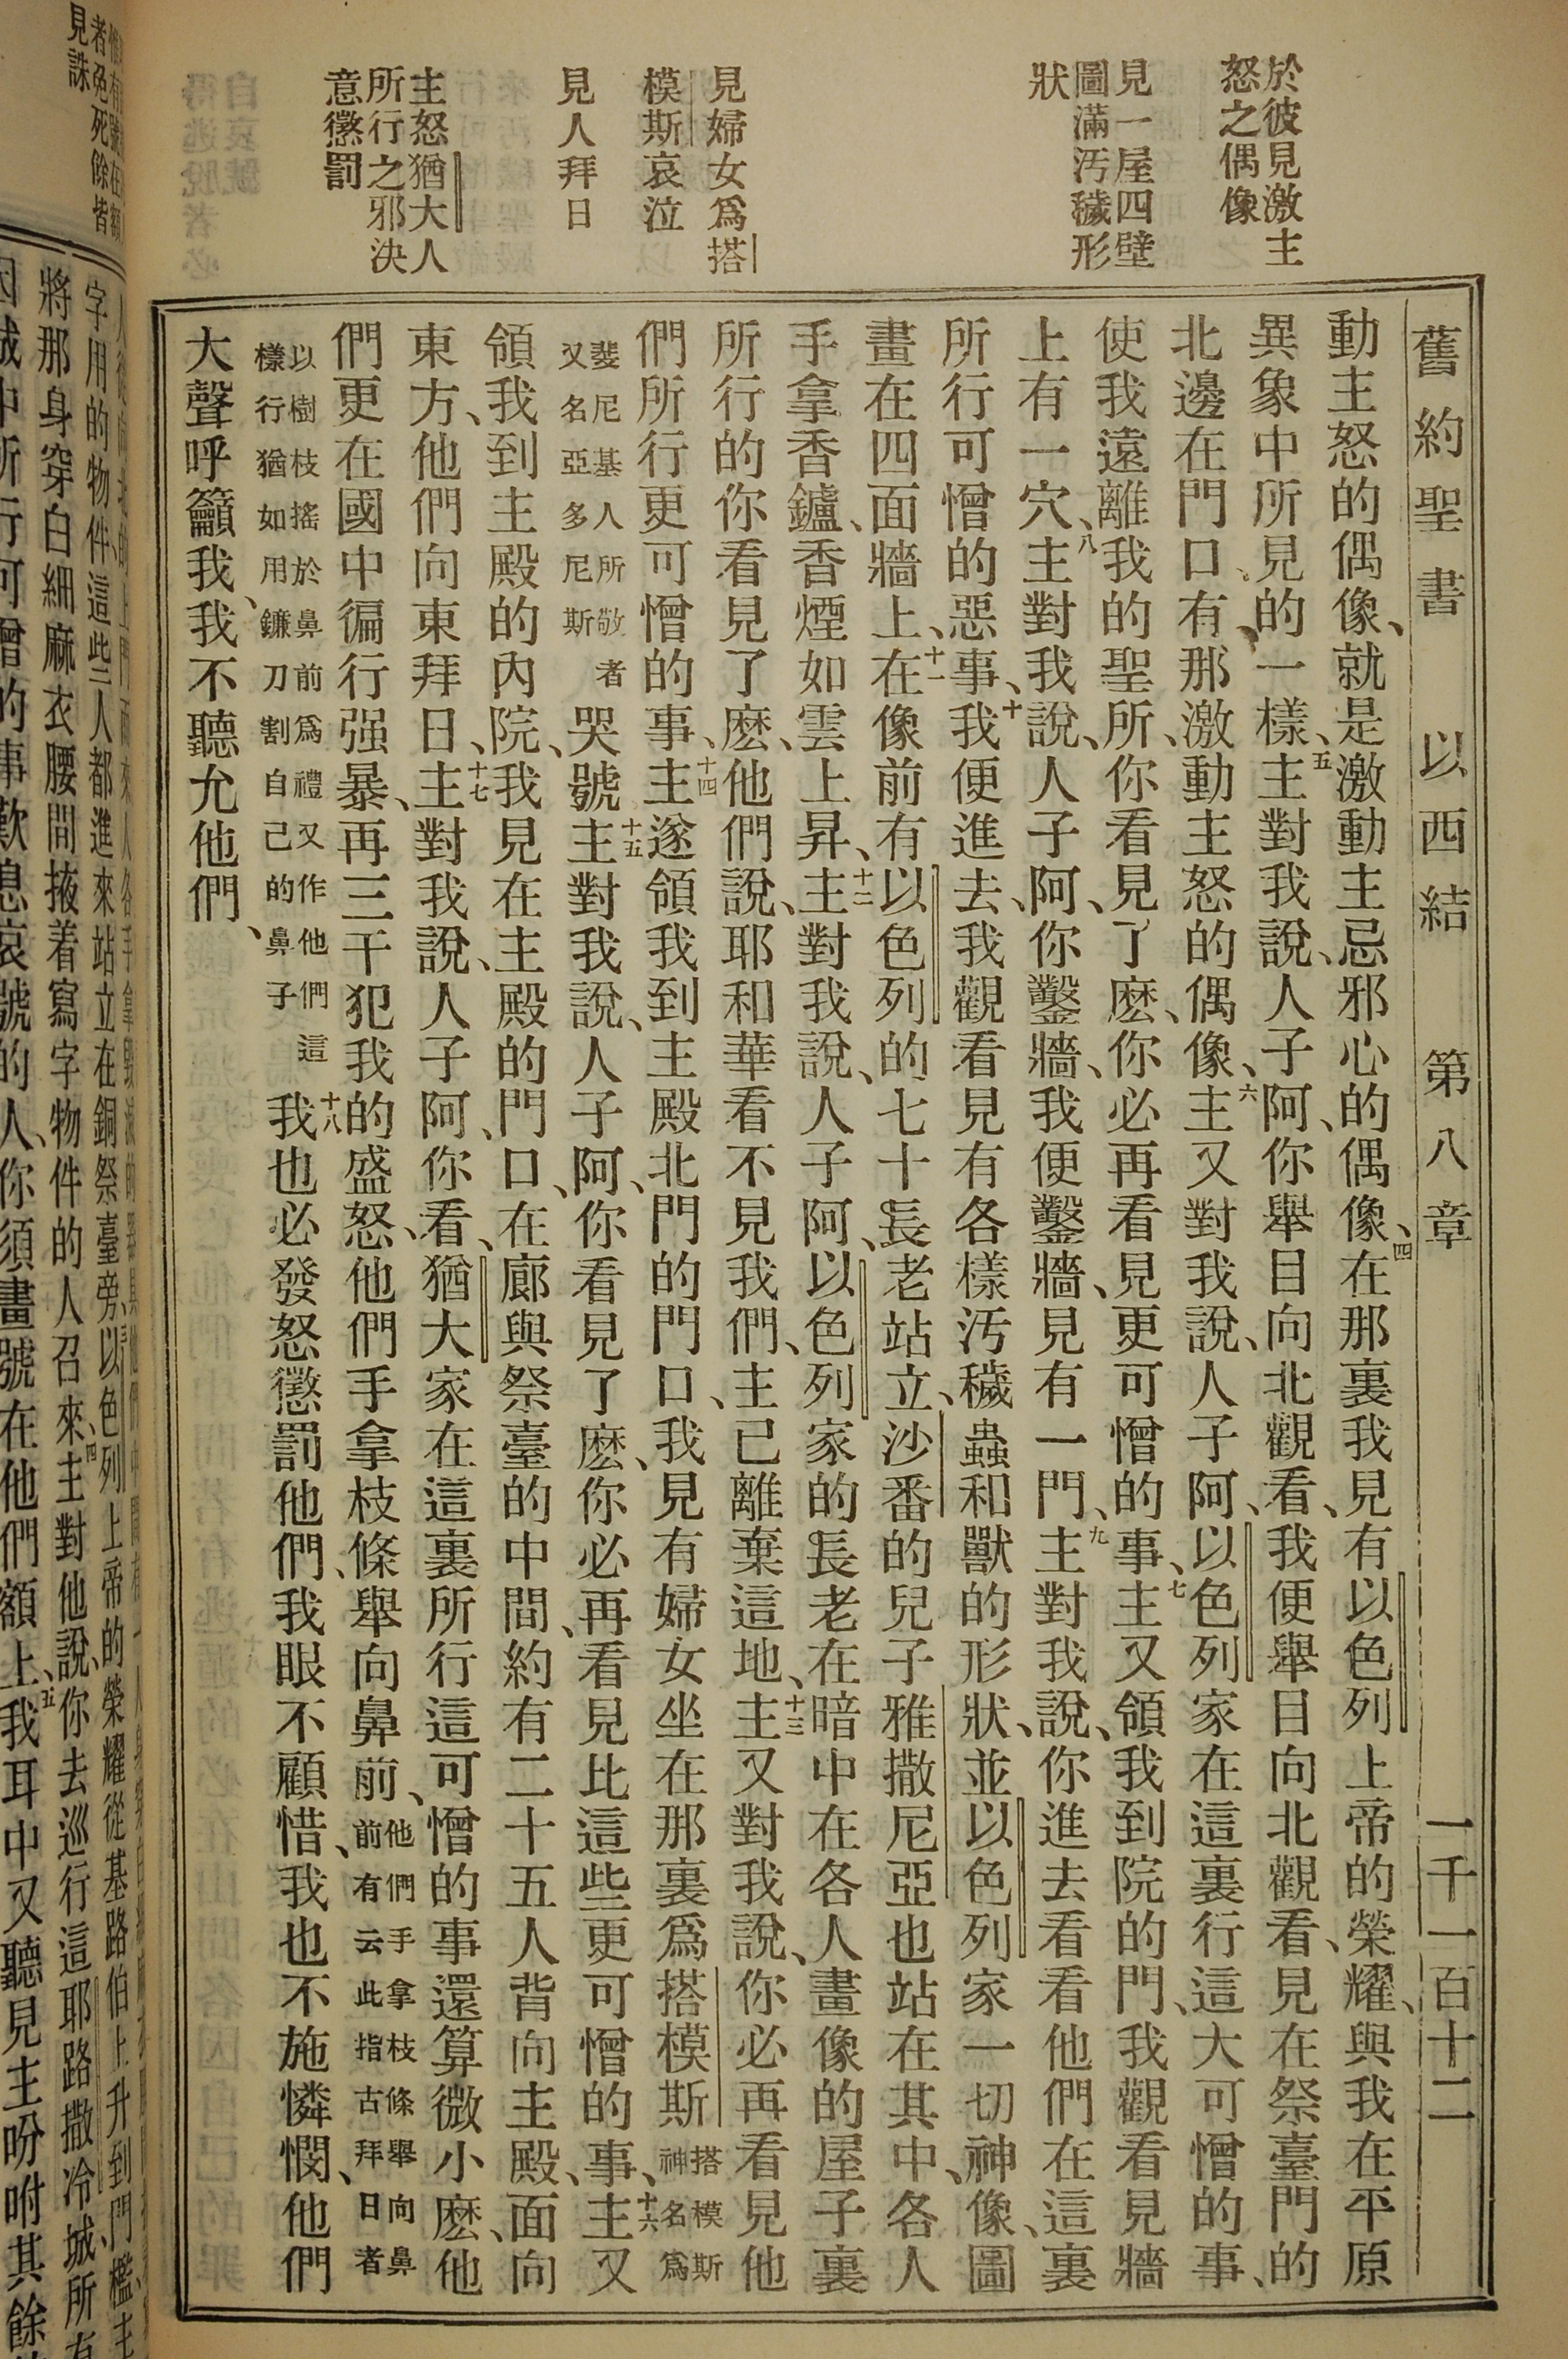 於彼見激主
怒之偶像
見一屋四壁
圖滿汚穢形
狀
見婦女爲搭
模斯哀泣
見人拜日
主怒猶大人
所行之邪決
意懲罰
舊約聖書 以西結 第八章 一千一百十二
動主怒的偶像、就是激動主忌邪心的偶像、四在那裏我見有以色列上帝的榮耀、與我在平原
異象中所見的一樣、五主對我說、人子阿、你舉目向北觀看、我便舉目向北觀看、見在祭臺門的
北邊在門口、有那激動主怒的偶像、六主又對我說、人子阿、以色列家在這裏行這大可憎的事、
使我遠離我的聖所、你看見了麽、你必再看見更可憎的事、七主又領我到院的門、我觀看見牆
上有一穴、八主對我說、人子阿、你鑿牆、我便鑿牆、見有一門、九主對我說、你進去看看他們在這裏
所行可憎的惡事、十我便進去、我觀看見有各樣汚穢蟲和獸的形狀、並以色列家一切神像、圖
畫在四面牆上、十一在像前有以色列的七十長老站立、沙番的兒子雅撒尼亞也站在其中、各人
手拿香鑪、香煙如雲上昇、十二主對我說、人子阿、以色列家的長老在暗中在各人畫像的屋子裏
所行的你看見了麽、他們說、耶和華看不見我們、主已離棄這地、十三主又對我說、你必再看見他
們所行更可憎的事、十四主遂領我到主殿北門的門口、我見有婦女坐在那裏爲搭模斯搭模斯爲神名
斐尼基人所敬者又名亞多尼斯哭號十五主對我說、人子阿、你看見了麽、你必再看見比這些更可憎的事、十六主又
領我到主殿的內院、我見在主殿的門口、在廊與祭臺的中間、約有二十五人背向主殿、面向
東方、他們向東拜日、十七主對我說、人子阿、你看、猶大家在這裏所行這可憎的事還算微小麽、他
們更在國中徧行强暴、再三干犯我的盛怒、他們手拿枝條舉向鼻前、他們手拿枝條舉向鼻前有云此指古拜日者
以樹枝搖於鼻前爲禮又作他們這樣行猶如用鐮刀割自己的鼻子十八我也必發怒懲罰他們、我眼不顧惜、我也不施憐憫、他們
大聲呼籲我、我不聽允他們、
者免死餘皆
見誅
字用的物件、這些人都進來站立在銅祭臺旁、以色列上帝的榮耀從基路伯上升到門檻、主
將那身穿白細麻衣腰間掖着寫字物件的人召來、四主對他說、你去巡行這耶路撒冷城、
的事歎息哀號的人、你須畫號在他們額上、五我耳中又聽見主吩咐其餘